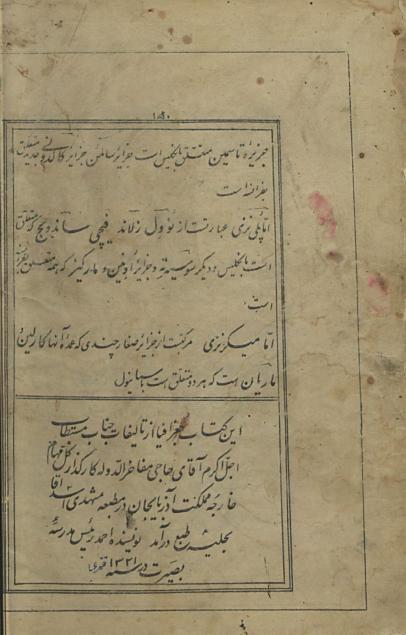 ۱۸۰
جزیرۀ تاسمین متعلق بانگلیس است جزایر سالمن جزایر کالدونی جدید متعلق
بفرانسه است
امّا پلی نزی عبارتست از نوول زلاند فیجی ساندویچ که متعلق
است بانگلیس و دیگر سوسیته و جزایر
است
امّا میکرنزی مرکبست از جزایر صغار چندی که عمدۀ آنها کارلین
ماریان است که هر دو متعلق است باسپانیول
این کتاب جغرافیا از تألیفات جناب مستطاب
اجلّ اکرم آقای حاجی مفاخر الدوله کارگذار کل مهام
خارجه مملکت آذربایجان در مطبعه مشهدی اسد آقا
بحلیۀ طبع درآمد نویسنده احمد رئیس مدرسۀ
بصیرت در سنه ۱۳۲۱ قمری